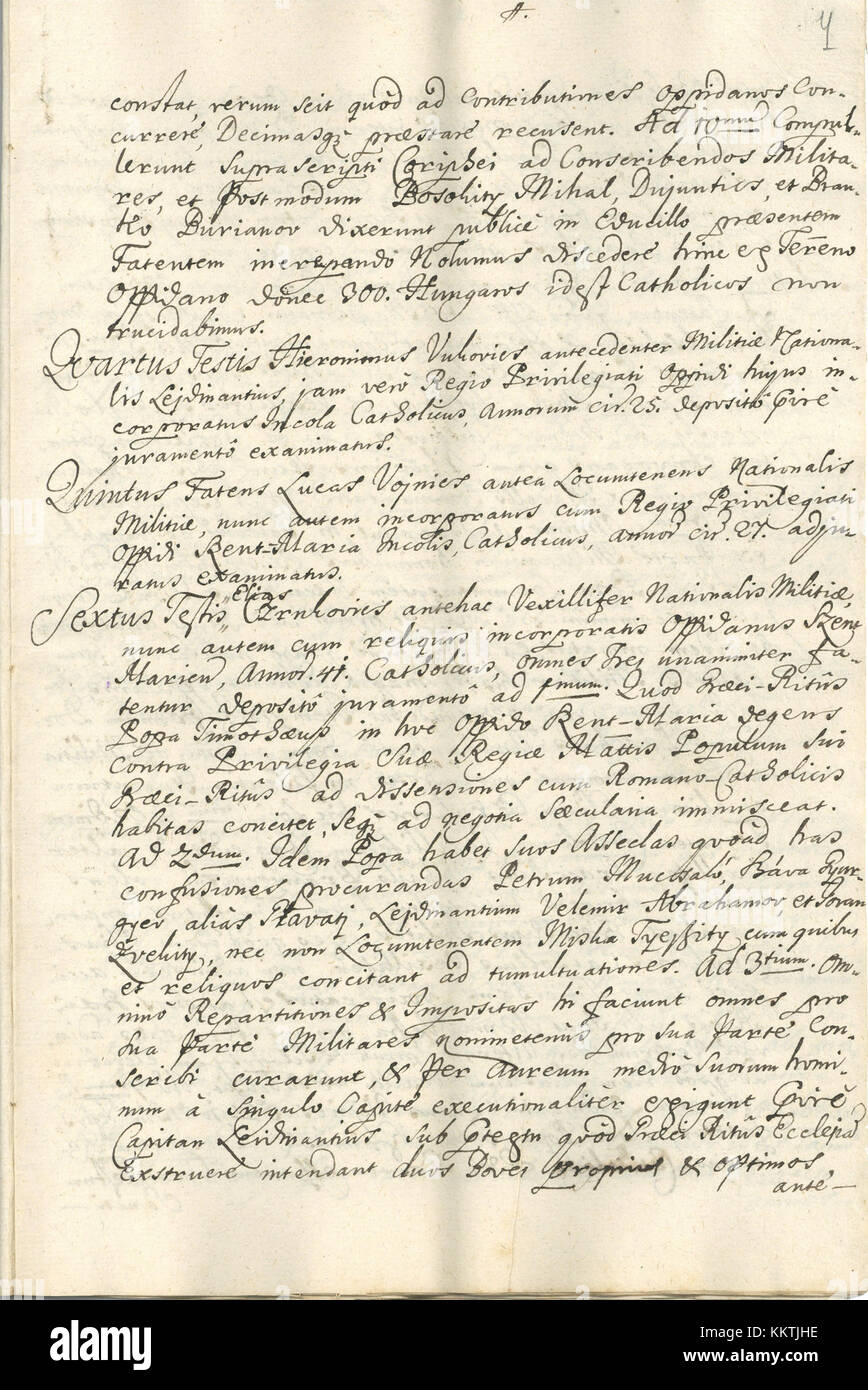 4.
4
constat, verum scit quòd ad Contributiones Oppidanos Con-
currere, Decimasq; præstare recusent. Ad 10mum Compul-
lerunt suprascripti Coriphei ad Conscribendos Milita-
res, et Post modum Bosohity Mihal, Dujunties, et Bran-
ko Burianov dixerunt publicè in Educillo præsentem
Fatentem increpando Nolumus discedere hinc ex Terreno
Oppidano donec 300. Hungaros idest Catholicos non
trucidabimus.
Quartus Testis Hieronimus Vukovics antecedenter Militiæ Nationa-
lis Lejdinantius, jam verò Regio Privilegiati Oppidi hujus in-
corporatus Incola Catholicus, Annorum cir. 25. depositô
juramentô examinatus.
Quintus Fatens Lucas Vojnics anteà Locumtenens Nationalis
Militiæ, nunc autem incorporatus cum Regio Privilegiati
Oppidi Szent-Maria Incolis, Catholicus, annor cir. 27. adju-
ratus examinatus.
Elias
Sextus Testis Czrnkovics antehac Vexillifer Nationalis Militiæ,
nunc autem cum reliquis incorporatis Oppidanus Szent
Marien, Annor. 41. Catholicus, omnes tres unanimiter fa-
tentur depositô juramentô ad pmum. Quod Græci-Ritûs
Popa Timothæus in hoc Oppido Szent-Maria degens
contra Privilegia Suæ Regiæ Mattis Populum sui
Græci-Ritûs ad dissensiones cum Romano-Catholicis
habitas concitet, seq; ad negotia sæcularia immisceat.
Ad 2dum. Idem Popa habet suos Asseclas quoad has
confusiones procurandas Petrum Mucsaló, Száva Gyur-
gyev aliàs Pravatj, Lejdinantium Velemir Abrahamov, et Jovan
Zvekity, nec non Locumtenentem Misha Tyessity cum quibus
et reliquos concitant ad tumultuationes. Ad 3tium. Om-
ninò Repartitiones & Impositas hi faciunt omnes pro
sua Parte Militares nonimetenùs pro sua Parte Con-
scribi curarunt, & Per Aureum mediô suorum homi-
num à singulo Capite executionalitèr exigunt
Capitan Lejdinantius sub Prætextu quòd Græci Ritûs Ecclesia
Exstruere intendant duos Boves proprios & optimos
ante-
alamy
Image ID: KKTJHE
www.alamy.com